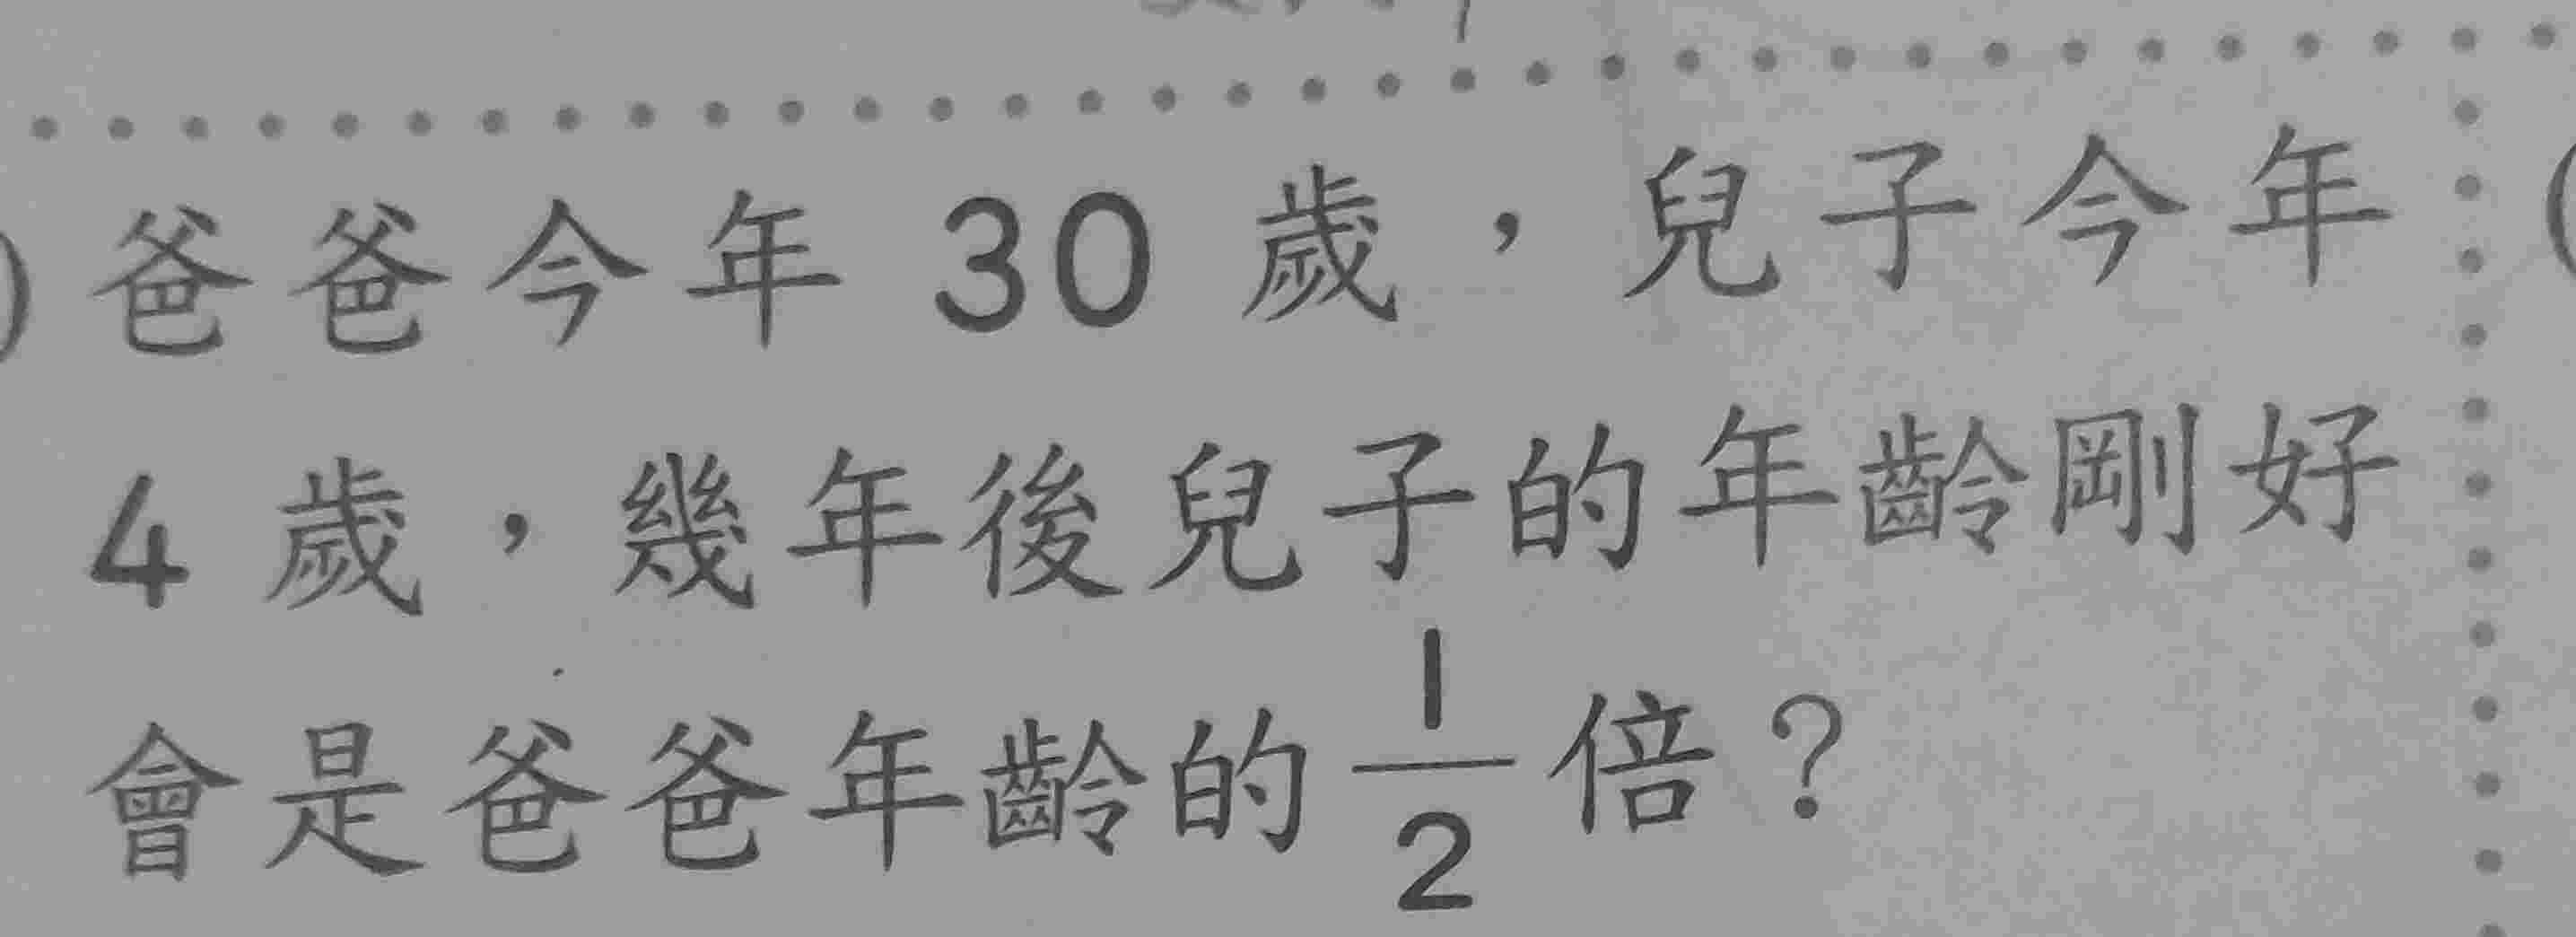 ) 爸爸今年 30 歲，兒子今年 (
4 歲，幾年後兒子的年齡剛好
會是爸爸年齡的 1/2 倍？